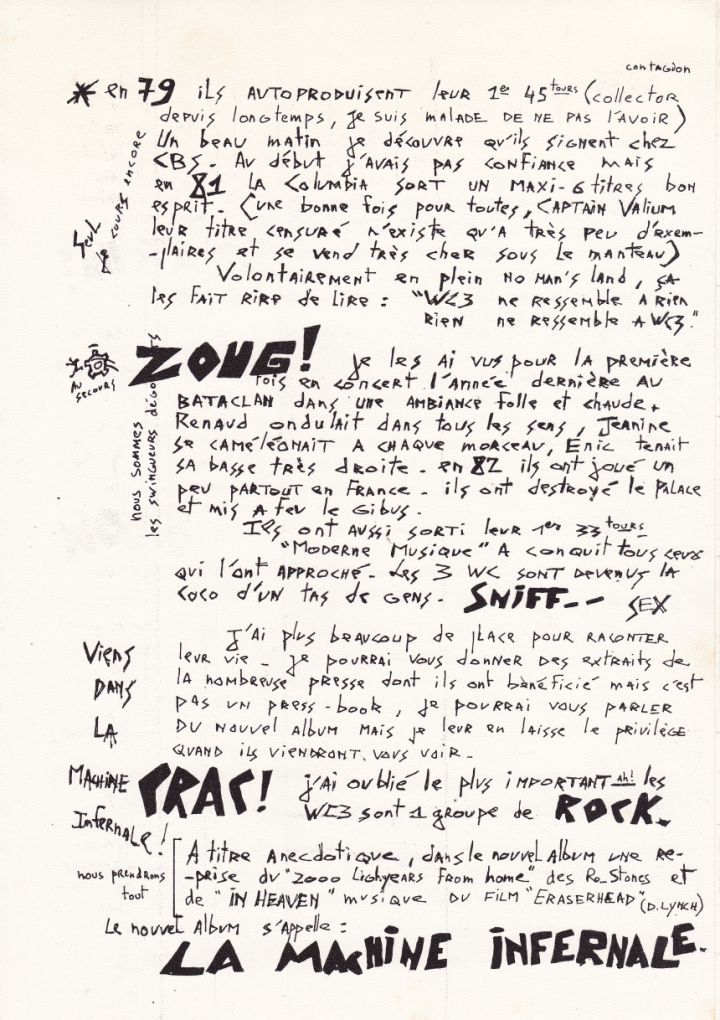 contagion
* en 79 ils AUTOPRODUISENT leur 1er 45 tours (collector
depuis longtemps, je suis malade de ne pas l'avoir)
Un beau matin je découvre qu'ils signent chez
CBS. Au début j'avais pas confiance mais
en 81 la Columbia sort un maxi-6 titres bon
esprit. (une bonne fois pour toutes, CAPTAIN VALIUM
leur titre censuré n'existe qu'à très peu d'exem-
-plaires et se vend très cher sous le manteau)
Seul
je cours encore
Volontairement en plein no man's land, ça
les fait rire de lire : "WC3 ne ressemble à rien
rien ne ressemble à WC3."
ZOUG! je les ai vus pour la première
au
secours
fois en concert l'année dernière au
BATACLAN dans une ambiance folle et chaude.
Renaud ondulait dans tous les sens, Jeanine
se caméléonait à chaque morceau, Eric tenait
sa basse très droite. en 82 ils ont joué un
peu partout en France. ils ont destroyé le Palace
et mis à feu le Gibus.
nous sommes
les swingueurs dégourdis
Ils ont aussi sorti leur 1er 33 tours
"Moderne Musique" a conquit tous ceux
qui l'ont approché. Les 3 WC sont devenus la
coco d'un tas de gens. SNIFF-- SEX
J'ai plus beaucoup de place pour raconter
leur vie. je pourrai vous donner des extraits de
la nombreuse presse dont ils ont bénéficié mais c'est
pas un press-book, je pourrai vous parler
du nouvel album mais je leur en laisse le privilège
quand ils viendront vous voir.
Viens
DANS
LA
MACHINE
Infernale!
CRAC! j'ai oublié le plus important ah! les
WC3 sont 1 groupe de ROCK.
nous prendrons
tout
A titre anecdotique, dans le nouvel album une re-
-prise du "2000 Lighyears from home" des Ro_Stones et
de "IN HEAVEN" musique du film "ERASERHEAD" (D.LYNCH)
Le nouvel Album s'appelle :
LA MACHINE INFERNALE.